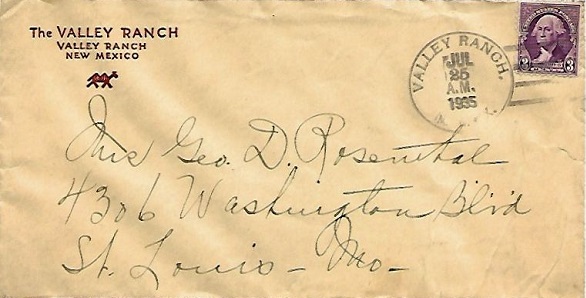 The VALLEY RANCH
VALLEY RANCH
NEW MEXICO
VALLEY RANCH,
JUL
25
A.M.
1935
3 3
Mrs Geo. D. Rosenthal
4306 Washington Blvd
St. Louis - Mo-